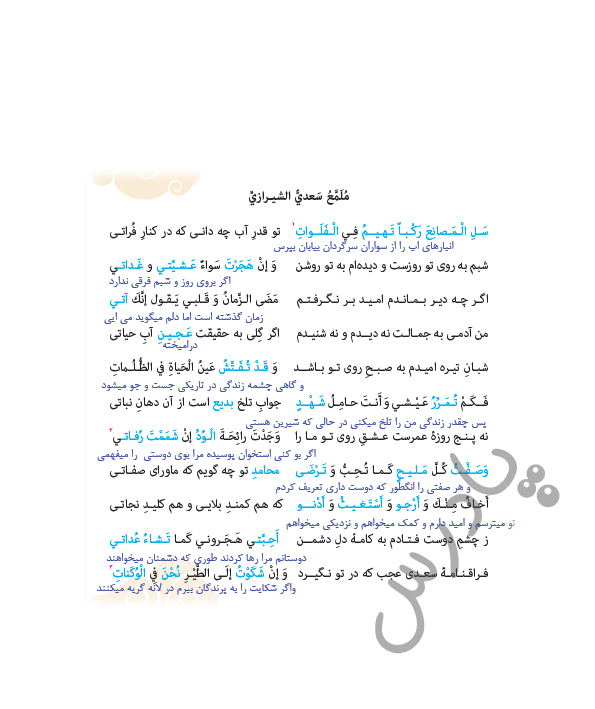 مُلَمَّعُ سَعديٍّ الشيرازيِّ
سَلِ الْمَصانِعَ رَكْباً تَهيمُ فِي الْفَلَواتِ¹ تو قدرِ آب چه دانی که در کنارِ فُراتی
انبارهای اب را از سواران سرگردان بیابان بپرس
شبم به روی تو روزست و دیده‌ام به تو روشن وَ إِنْ هَجَرْتَ سَواءٌ عَشيَّتي وَ غَداتي
اگر بروی روز و شبم فرقی ندارد
اگر چه دیر بماندم امید بر نگرفتم مَضَى الزَّمانُ وَ قَلبي يَقولُ إنَّكَ آتي
زمان گذشته است اما دلم میگوید می ایی
من آدمی به جمالت نه دیدم و نه شنیدم اگر گِلی به حقیقت عَجینِ آبِ حیاتی
درامیخته
شبانِ تیره امیدم به صبحِ روی تو باشد وَ قَدْ تُفَتَّشُ عَينُ الْحَياةِ فِي الظُّلُماتِ
و گاهی چشمه زندگی در تاریکی جست و جو میشود
فَكَمْ تُمَرِّرُ عَيْشي وَ أَنْتَ حامِلُ شَهْدٍ جوابِ تلخ بدیع است از آن دهانِ نباتی
پس چقدر زندگی من را تلخ میکنی در حالی که شیرین هستی
نه پنج روزهٔ عمرست عشقِ روی تو ما را وَجَدْتَ رائِحَةَ الْوُدِّ إنْ شَمَمْتَ رُفاتي²
اگر بو کنی استخوان پوسیده مرا بوی دوستی را میفهمی
وَصَفْتُ كُلَّ مَليحٍ كَما تُحِبُّ وَ تَرْضَى محامدِ تو چه گویم که ماورای صفاتی
و هر صفتی را انگطور که دوست داری تعریف کردم
أَخافُ مِنْكَ وَ أَرْجو وَ أَسْتَغيثُ وَ أَدْنو که هم کمندِ بلایی و هم کلیدِ نجاتی
تو میترسم و امید دارم و کمک میخواهم و نزدیکی میخواهم
ز چشمِ دوست فتادم به کامهٔ دلِ دشمن أَحِبَّتي هَجَروني كَما تَشاءُ عُداتي
دوستانم مرا رها کردند طوری که دشمنان میخواهند
فراقنامهٔ سعدی عجب که در تو نگیرد وَ إنْ شَكَوْتُ إلَى الطَّيْرِ نُحْنَ فِي الْوُكَناتِ³
واگر شکایت را به پرندگان ببرم در لانه گریه میکنند
پادرس